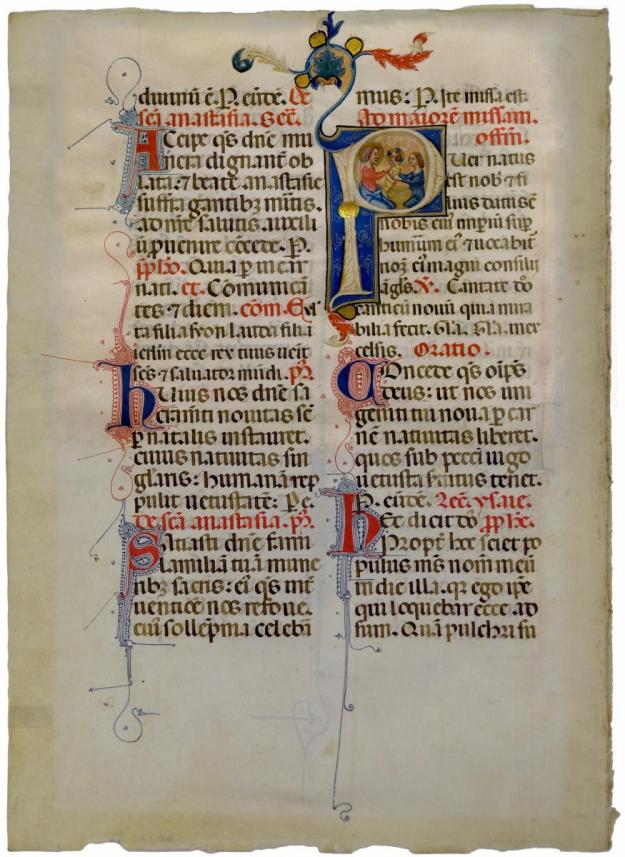 diuinū ē. P. eūdē. De
scā anastasia. Secr̄.
Accipe q̄s dn̄e mu
nera dignant̄ ob
lata: ⁊ beate anastasie
suffragantibꝫ m̄itis.
ad nr̄e salutis auxili
ū ꝓuenire cōcede. P.
p̄p̄lo. Quia p in car
nati. et. Comunicā
tes ⁊ diem. com. Ex̄l
ta filia syon lauda filia
ierl̄m ecce rex tuus uēit
scs̄ ⁊ saluator mūdi. p̄r̄.
Huius nos dn̄e sa
cramēti nouitas sē
ꝑ natalis instauret.
cuius natiuitas sin
glaris: humanā rep
pulit uetustatē: Pe.
De scā anastasia. p̄r̄.
Satiasti dn̄e fami
liam tuā mune
ribꝫ sacris: ei' q̄s int̄
uentiōe nos refoue.
cui' sollēpnia celebra
mus: P. Ite missa est.
Ad maiorē missam.
offm̄.
Puer natus
est nob' ⁊ fi
lius datus ē
nobis cui' īnpiū sup̄
humerum ei' ⁊ uocabit̄
nom̄ ei' magni consilij
āgl̄s. V̄. Cantate dō
canticū nouū quia mira
bilia fecit. Gl̄a. Gl̄a. in ex
celsis. Oratio.
Concede q̄s oīp̄s
deus: ut nos uni
geniti tui noua p car
nē natiuitas liberet.
quos sub peccti iugo
uetusta seruitus tenet.
P. eūdē. Lec̄. ysaie.
Hec dicit dō p̄p̄he.
Propt̄ hoc sciet po
pulus ms̄ nomē meū
in die illa. qr̄ ego ip̄e
qui loquebar ecce ad
sum. Quā pulchri su